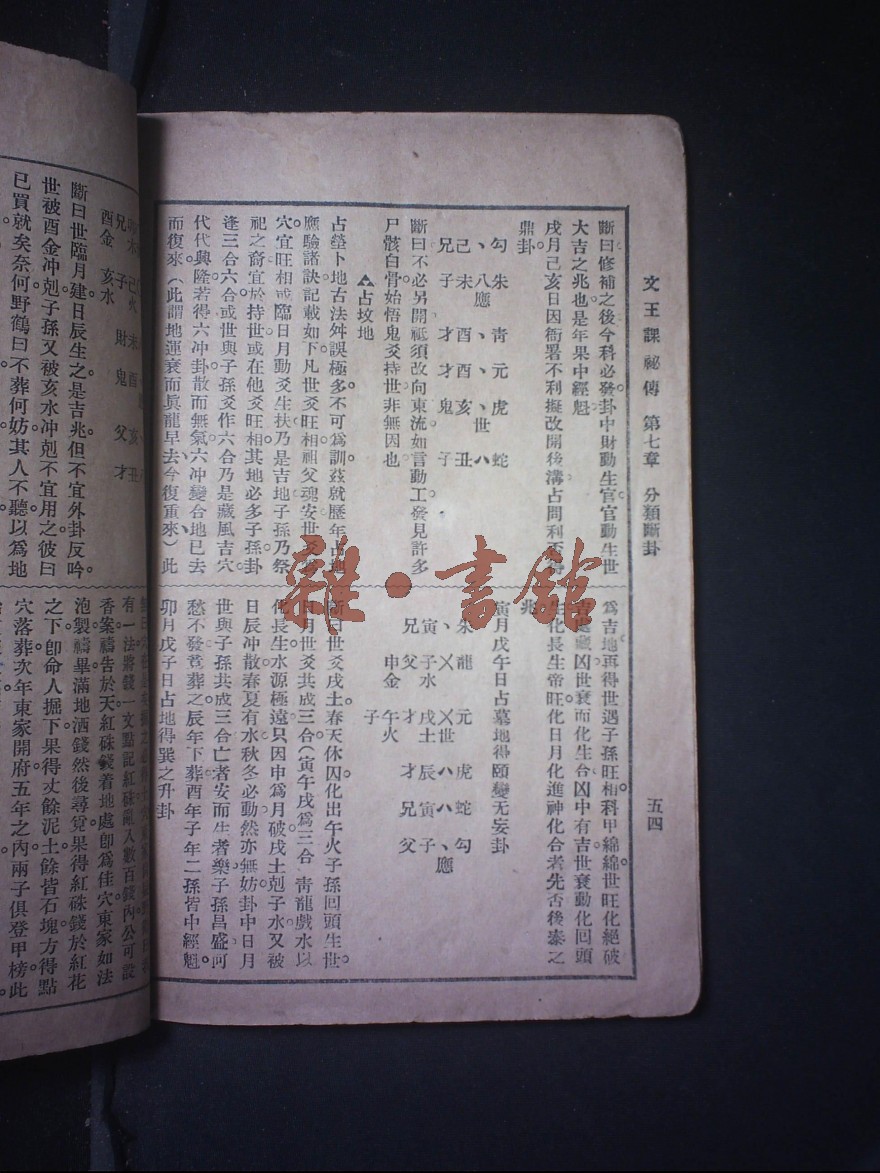 文王課祕傳 第七章 分類斷卦 五四
斷曰修補之後今科必發卦中財動生官官動生世
大吉之兆也是年果中經魁
戌月己亥日因衙署不利擬改開後溝占問利否得
鼎卦
勾 朱 青 元 虎 蛇
、 八應 、 、 、世 八
己 未 酉 酉 亥 丑
兄 子 才 才 鬼 子
斷曰不必另開祗須改向東流如言動工發見許多
尸骸白骨始悟鬼爻持世非無因也
占坟地
占塋卜地古法舛誤極多不可爲訓茲就歷年占地
應驗諸訣記載如下凡世爻旺相祖父魂安世爻爲
穴宜旺相或臨日月動爻生扶乃是吉地子孫乃祭
祀之裔宜於持世或在他爻旺相其地必多子孫卦
逢三合六合或世與子孫爻作六合乃是藏風吉穴
代代興隆若得六冲卦散而無氣六冲變合地已去
而復來（此謂地運衰而眞龍早去今復重來）此
爲吉地再得世遇子孫旺相科甲綿綿世旺化絕破
吉處藏凶世衰而化生合凶中有吉世衰動化回頭
生化長生帝旺化日月化進神化合者先否後泰之
兆
寅月戊午日占墓地得頤變无妄卦
朱 龍 元 虎 蛇 勾
、 乂 乂世 八 八 、應
寅 子水 戌土 辰 寅 子
兄 父 才 才 兄 父
申金 午火
子
斷曰世爻戌土春天休囚化出午火子孫回頭生世
日月世爻共成三合（寅午戌爲三合）青龍戲水以
化長生水源極遠只因申爲月破戌土剋子水又被
日辰冲散春夏有水秋冬必動然亦無妨卦中日月
世與子孫共成三合亡者安而生者樂子孫昌盛何
愁不發竟葬之辰年下葬酉年子年二孫皆中經魁
卯月戊子日占地得巽之升卦
卯木 巳火 未 酉 亥 丑
兄 子 財 鬼 父 才
酉金 亥水
斷曰世臨月建日辰生之是吉兆但不宜外卦反吟
世被酉金冲剋子孫又被亥水冲剋不宜用之彼曰
已買就矣奈何野鶴曰不葬何妨其人不聽以爲地
有一法將錢一文點記紅硃亂入數百錢內公可設
香案禱告於天紅硃錢着地處卽爲佳穴東家如法
泡製禱畢滿地洒錢然後尋覓果得紅硃錢於紅花
之下卽命人掘下果得丈餘泥土餘皆石塊方得點
穴落葬次年東家開府五年之內兩子俱登甲榜此
雜·書館